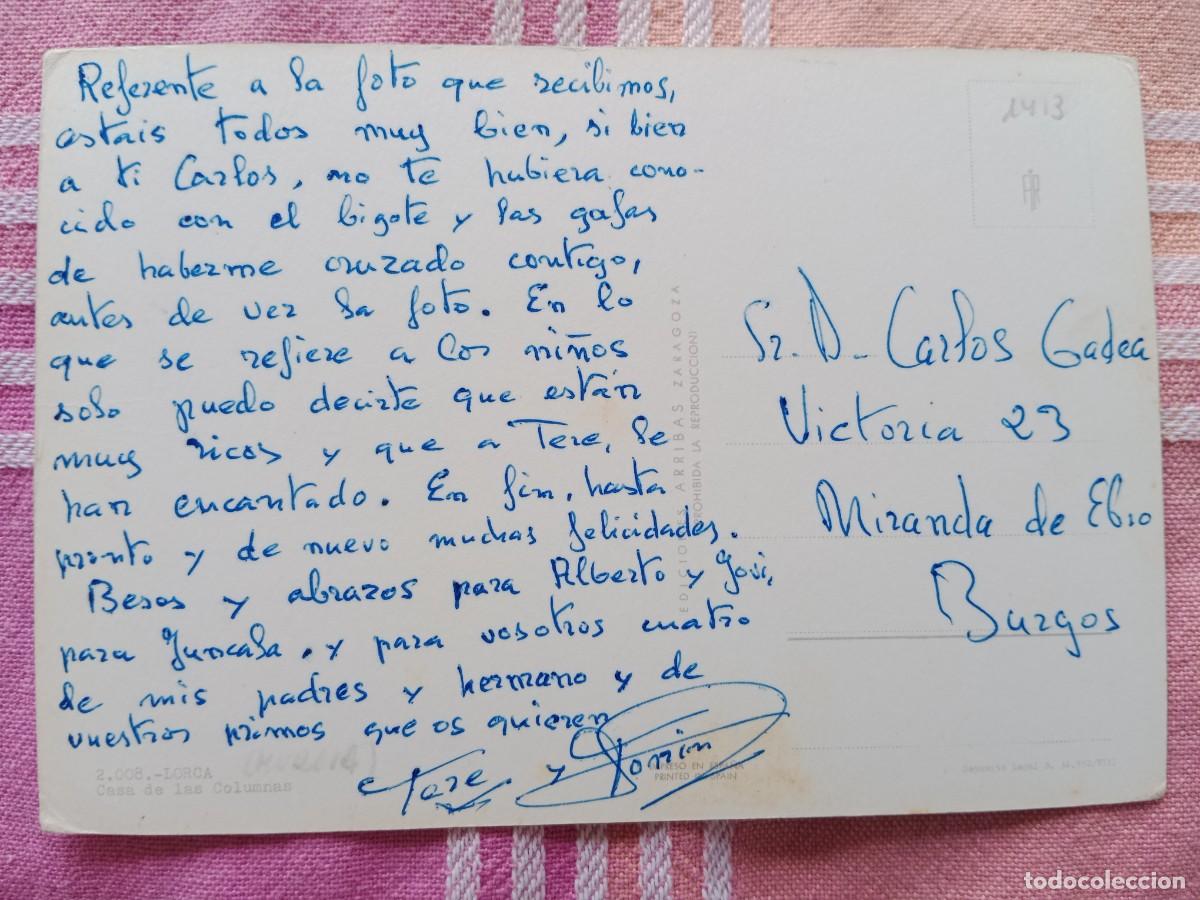 Referente a la foto que recibimos,
estais todos muy bien, si bien
a ti Carlos, no te hubiera cono-
cido con el bigote y las gafas
de haberme cruzado contigo,
antes de ver la foto. En lo
que se refiere a los niños
solo puedo decirte que están
muy ricos y que a Tere, le
han encantado. En fin, hasta
pronto y de nuevo muchas felicidades.
Besos y abrazos para Alberto y Govi,
para Juncala. y para vosotros cuatro
de mis padres y hermano y de
vuestros primos que os quieren
Tere y
2.008.-LORCA (MURCIA)
Casa de las Columnas
EDICIONES ARRIBAS ZARAGOZA
PROHIBIDA LA REPRODUCCION
IMPRESO EN ESPAÑA
PRINTED IN SPAIN
1413
Sr. D. Carlos Gadea
Victoria 23
Miranda de Ebro
Burgos
Deposito Legal
todocoleccion